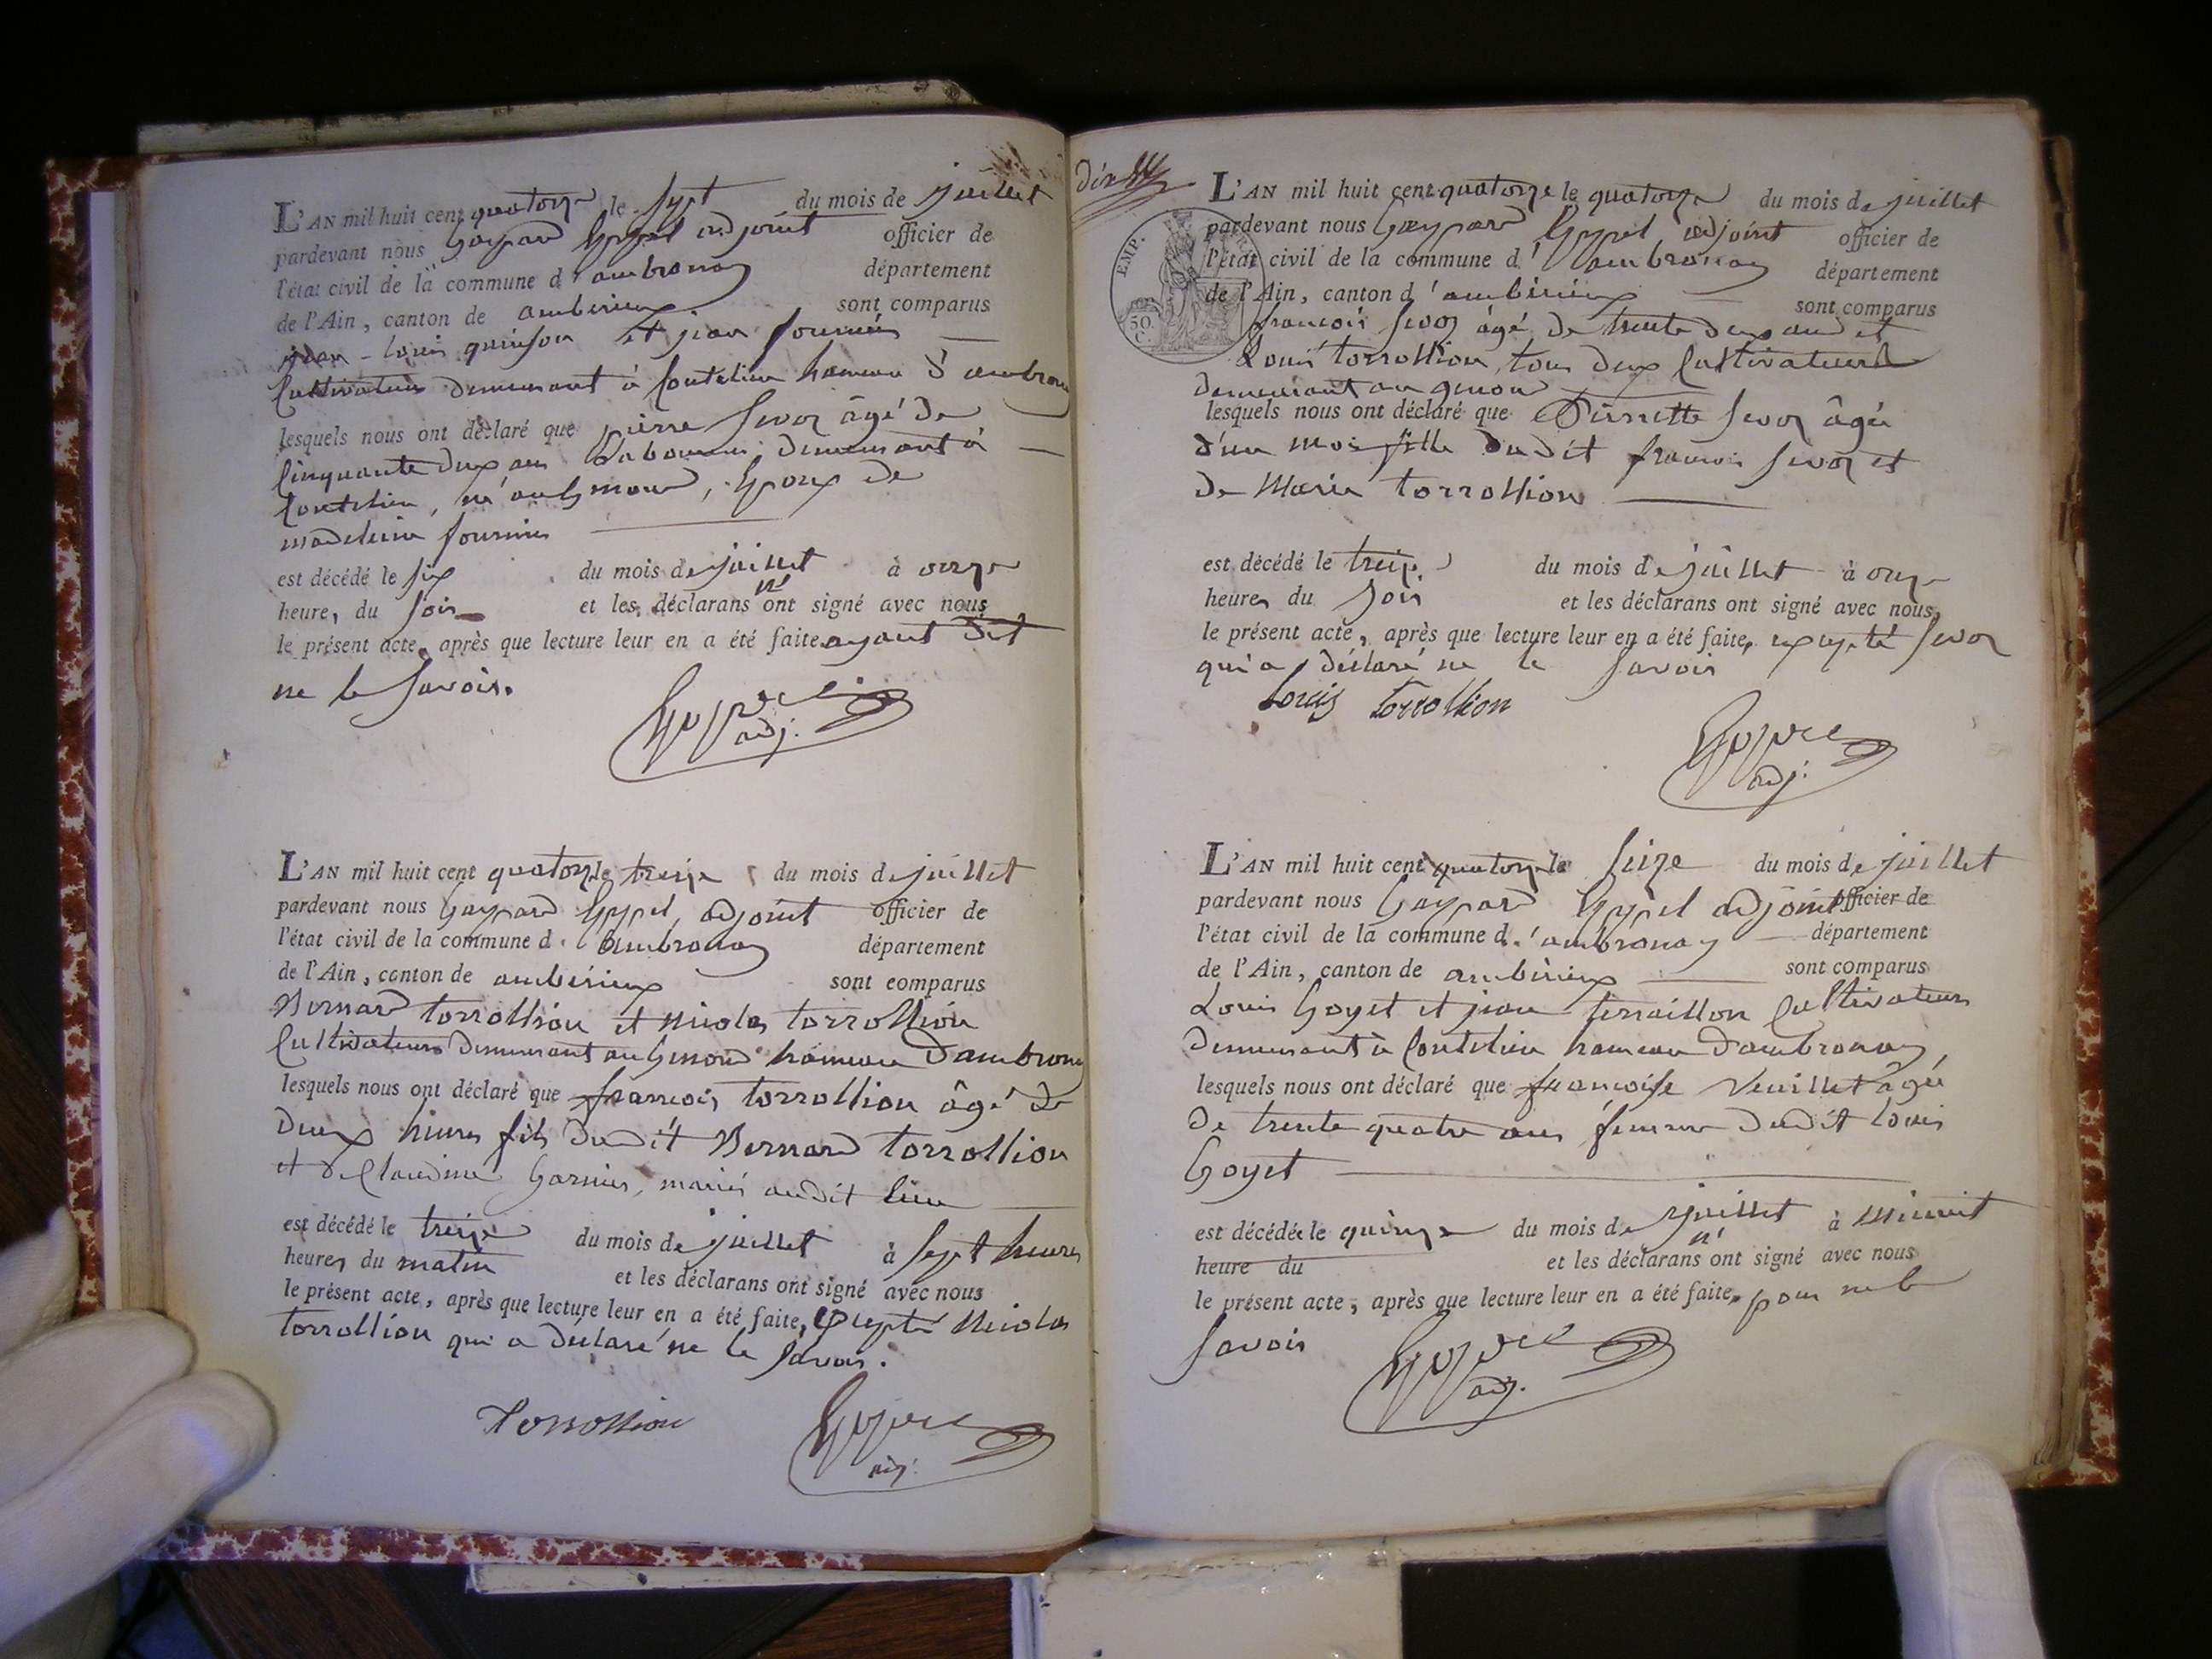 L'AN mil huit cent quatorze le sept du mois de juillet
pardevant nous Gaspard Goppel adjoint officier de
l'état civil de la commune d'ambronay département
de l'Ain, canton de amberieux sont comparus
jean-louis quinson et jean fournier
Cultivateurs demeurant à Coutelieu hameau d'ambronay
lesquels nous ont déclaré que pierre Sevoz âgé de
Cinquante deux ans Laboureur demeurant à
Coutelieu, né au genoud, Epoux de
madeleine fournier
est décédé le six du mois de juillet à onze
heures du soir et les déclarans n'ont signé avec nous
le présent acte, après que lecture leur en a été faite ayant dit
ne le savoir.
adj.
L'AN mil huit cent quatorze le treize du mois de juillet
pardevant nous Gaspard Goppel, adjoint officier de
l'état civil de la commune d'ambronay département
de l'Ain, canton de ambérieux sont comparus
Bernard torrollion et nicolas torrollion
Cultivateurs demeurant au Genoud hameau d'ambronay
lesquels nous ont déclaré que francois torrollion âgé de
deux heures fils dudit Bernard torrollion
et de Claudine Garnier, mariés audit lieu
est décédé le treize du mois de juillet à sept heures
heures du matin et les déclarans ont signé avec nous
le présent acte, après que lecture leur en a été faite, Excepté Nicolas
torrollion qui a déclaré ne le savoir.
Torrollion
adj.
L'AN mil huit cent quatorze le quatorze du mois de juillet
pardevant nous Gaspard adjoint officier de
l'état civil de la commune d'ambronay département
de l'Ain, canton d'ambérieux sont comparus
EMP.
50.
C.
francois Sevoz âgé de trente deux ans et
Louis torrollion, tous deux Cultivateurs
demeurant au genoud
lesquels nous ont déclaré que Pierrette Sevoz âgée
d'un mois fille dudit francois Sevoz et
de Marie torrollion
est décédé le treize du mois de juillet à onze
heures du soir et les déclarans ont signé avec nous,
le présent acte, après que lecture leur en a été faite, excepté Sevoz
qui a déclaré ne le savoir
Louis torrollion
adj.
L'AN mil huit cent quatorze le seize du mois de juillet
pardevant nous Gaspard adjoint officier de
l'état civil de la commune d'ambronay département
de l'Ain, canton de ambérieux sont comparus
Louis Goyet et jean terraillon Cultivateurs
demeurant à Coutelieu hameau d'ambronay
lesquels nous ont déclaré que françoise Veuillet âgée
de trente quatre ans femme dudit Louis
Goyet
est décédée le quinze du mois de juillet à minuit
heure du et les déclarans n'ont signé avec nous
le présent acte, après que lecture leur en a été faite, pour ne le
savoir
adj.